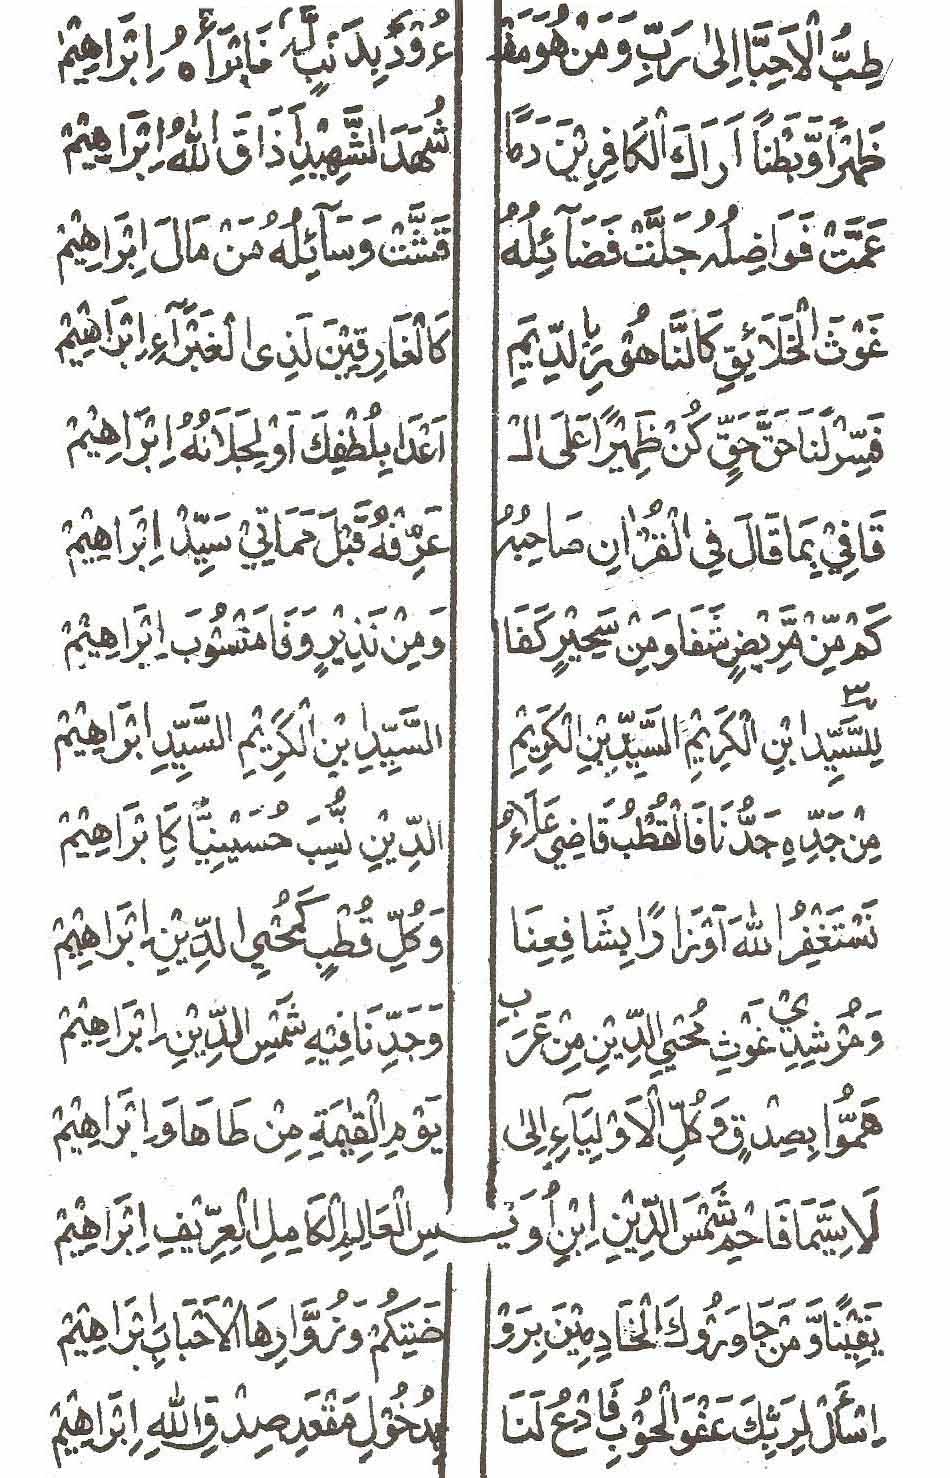 طِبُّ الْاَحِبَّا اِلٰى رَبِّ وَمَنْ هُوَ مَفْ
ظَهْرًا وَّبَطْنًا اَرَاكَ الْكَافِرِيْنَ دَمًا شُهَدَ الشَّهِيْدِ اَذَاقَ اللهُ اِبْرَاهِيْمْ
عَمَّتْ فَوَاضِلُهُ جَلَّتْ فَضَآئِلُهُ وَسَآئِلُهُ مَنْ مَالَ اِبْرَاهِيْمْ
غَوْثَ الْخَلَائِقِ كَالْغَارِقِيْنَ لَذِى الْغَبْرَآءِ اِبْرَاهِيْمْ
فَسِّرْ لَنَا حَقَّ حَقٍّ كُنْ ظَهِيْرًا عَلَى الْـ اَعْدَا بِلُطْفِكَ اَوْ اِبْرَاهِيْمْ
قَافِيْ بِمَا قَالَ فِى الْقُرْاٰنِ صَاحِبُهُ عَرِّفْهُ قَبْلَ مَمَاتِيْ سَيِّدْ اِبْرَاهِيْمْ
كَمْ مِّنْ مَّرِيْضٍ شَفَا وَمِنْ سَحِيْرٍ كَفَا وَمِنْ نَذِيْرٍ وَفَا اِبْرَاهِيْمْ
لِلسَّيِّدِ ابْنِ الْكَرِيْمِ السَّيِّدِ بْنِ الْكَرِيْمِ السَّيِّدِ ابْنِ الْكَرِيْمِ السَّيِّدِ اِبْرَاهِيْمْ
مِنْ جَدِّهِ جَدُّنَا فَالْقُطْبُ قَاضِيْ عَلَاءُ الدِّيْنِ نُسِّبَ حُسَيْنِيًّا كَاِبْرَاهِيْمْ
نَسْتَغْفِرُ اللهَ اَوْزَارًا بِشَافِعِنَا وَكُلِّ قُطْبٍ كَمُحْيِى الدِّيْنِ اِبْرَاهِيْمْ
وَمُرْشِدِيْ غَوْثِ مُحْيِى الدِّيْنِ مِنْ عَرَبٍ وَجَدِّنَا فِيْهِ شَمْسِ الدِّيْنِ اِبْرَاهِيْمْ
هَمُّوْا بِصِدْقٍ وَكُلِّ الْاَوْلِيَآءِ اِلٰى يَوْمِ الْقِيٰمَةِ مِنْ طَاهَا وَاِبْرَاهِيْمْ
لَاسِيَّمَا شَمْسَ الدِّيْنِ ابْنِ اُوَيْسِ الْعَالِمِ الْكَامِلِ الْعِرِّيْفِ اِبْرَاهِيْمْ
يَقِيْنًا وَّمَنْ جَاوَرُوْكَ الْخَادِمِيْنَ بِرَوْ ضَتِكُمْ وَزُوَّارِهَا الْاَحْبَابِ اِبْرَاهِيْمْ
اِسْأَلْ لِرَبِّكَ عَفْوَ الْحُوْبِ فَادْعُ لَنَا بِدُخُوْلِ مَقْعَدِ صِدْقِ اللهِ اِبْرَاهِيْمْ